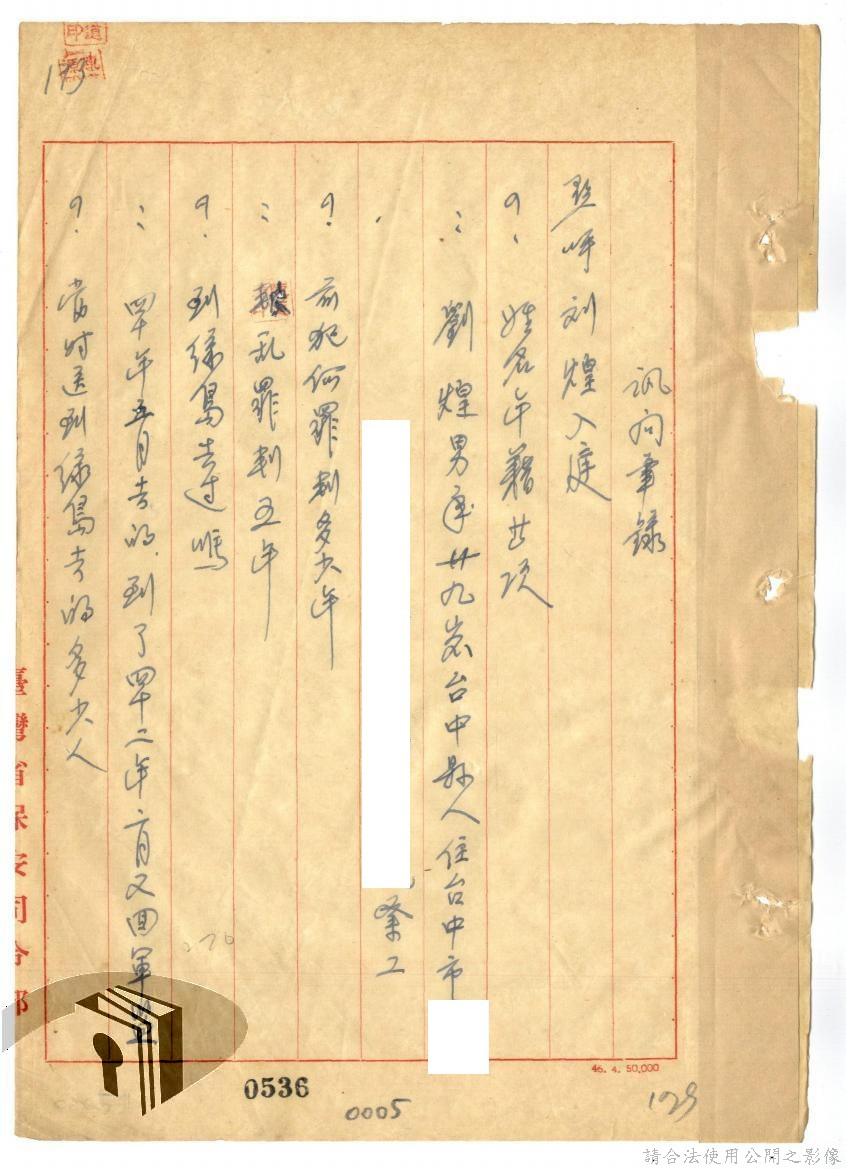 訊問筆錄
點呼刘煌入庭
？姓名年籍其項
：劉煌男年廿九岁台中縣人住台中市
業工
？前犯何罪判多少年
：叛乱罪判五年
？到綠島去过嗎
：四十年五月去的.到了四十二年六月又回軍監
？當时送到綠島去的多少人
臺灣省保安司令部
46. 4. 50,000
0536
0005
129
請合法使用公開之影像